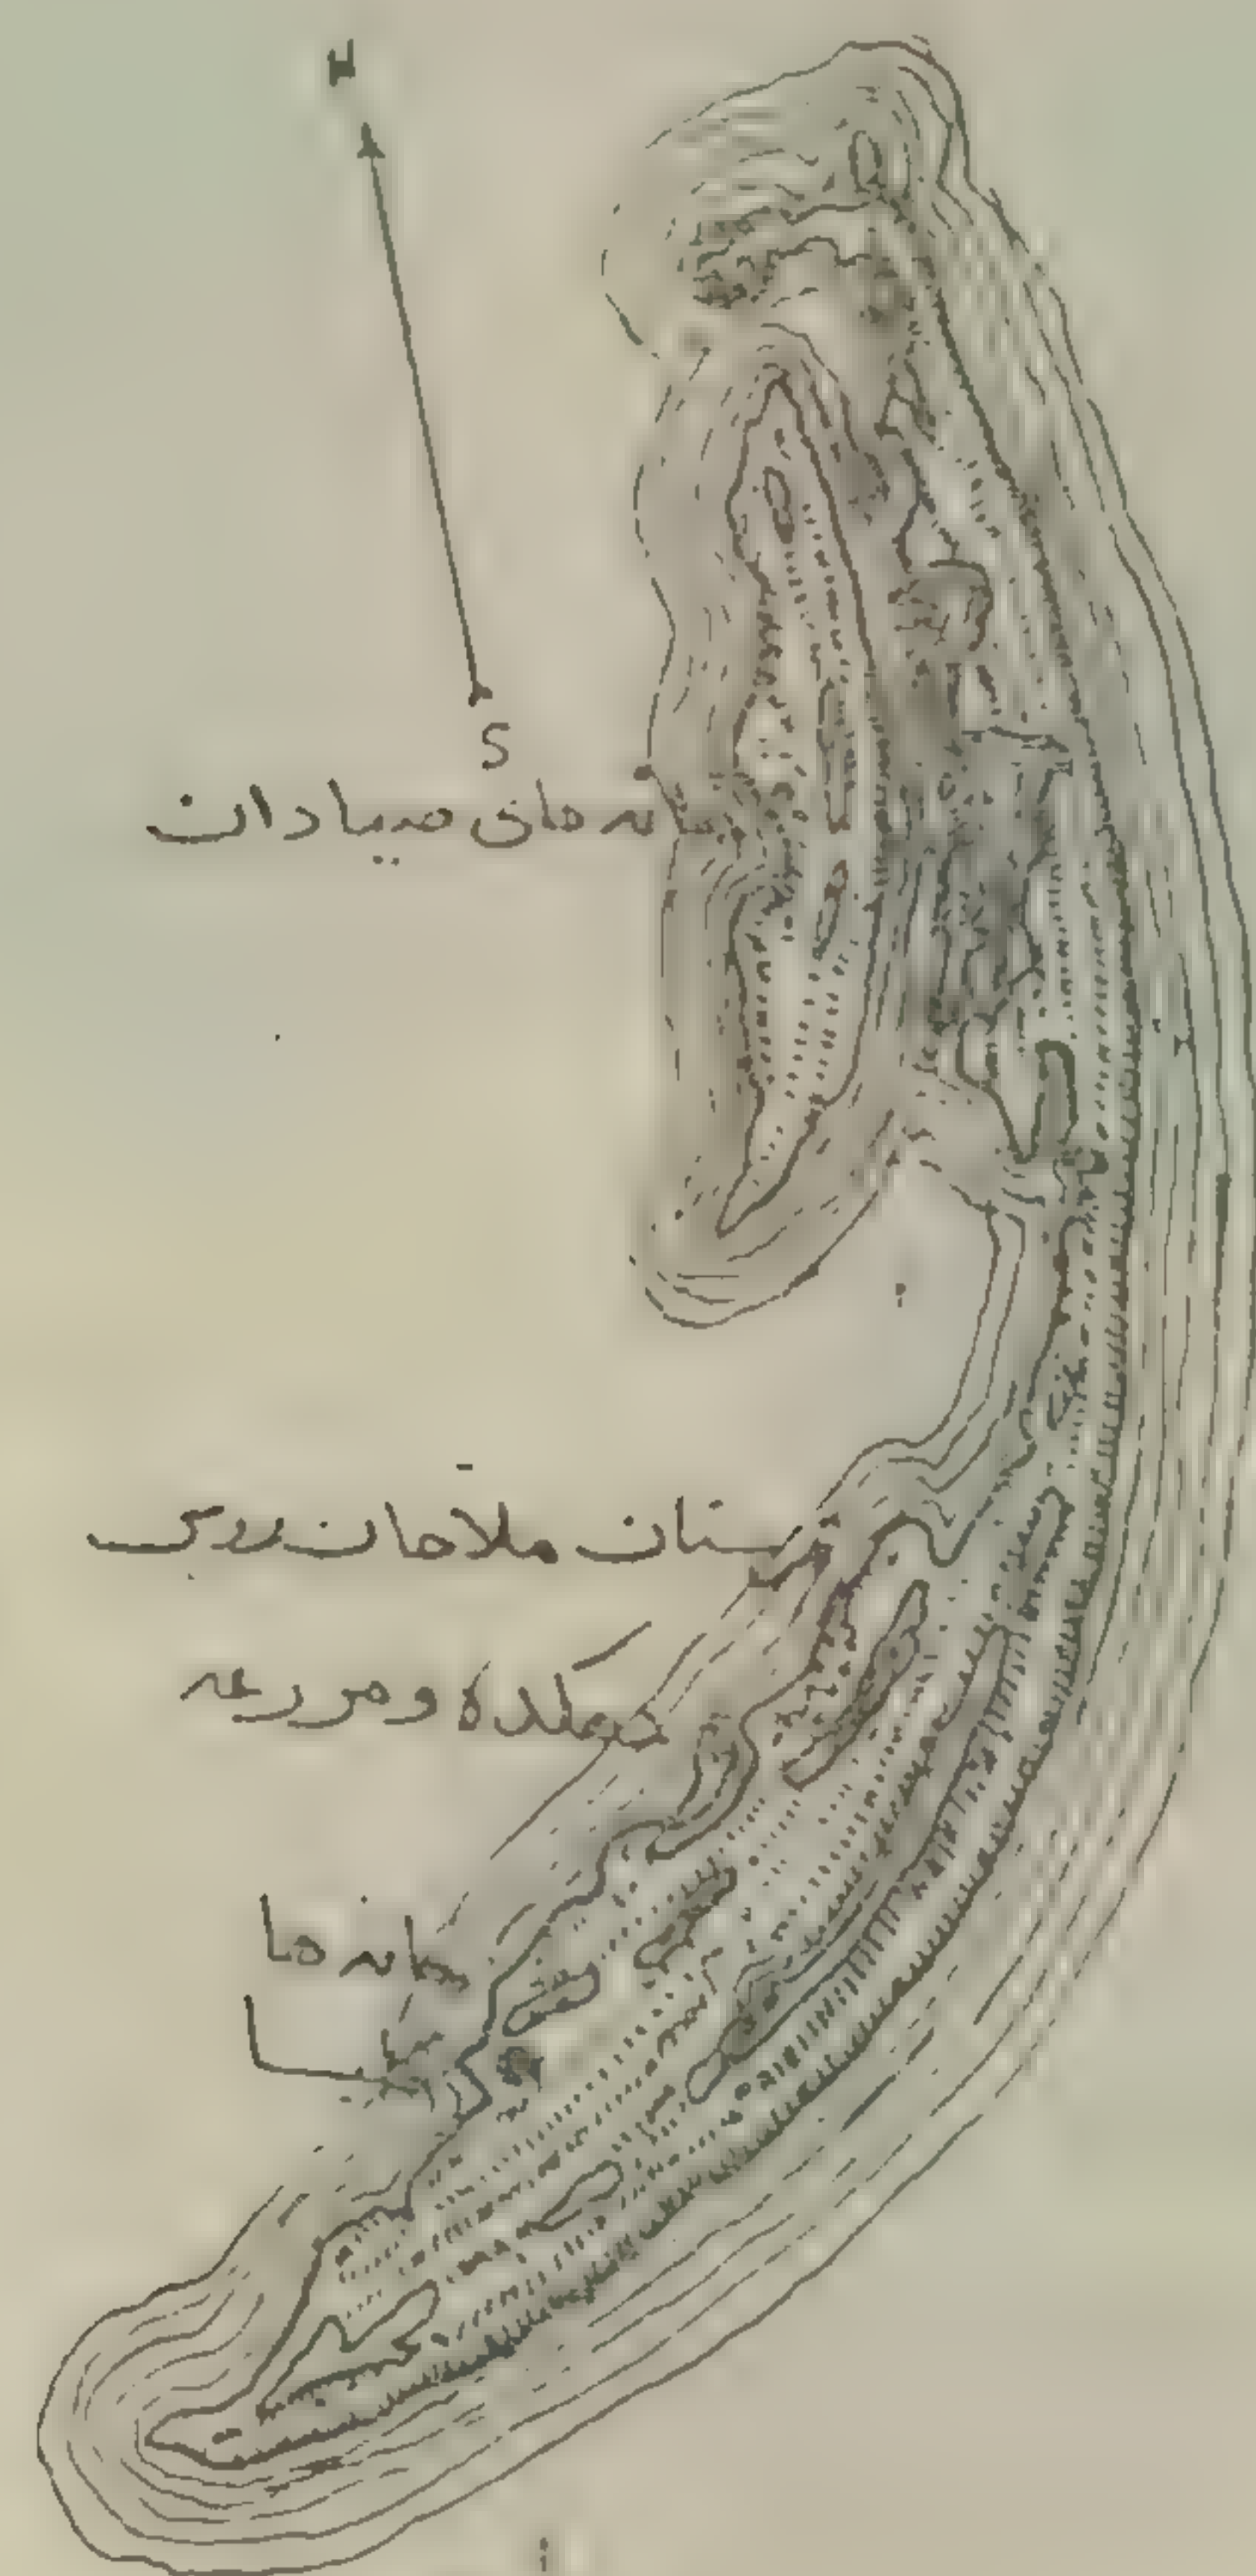 N
S
خانه های صیادان
قبرستان ملاحان روسی
دهکده و مزرعه
خانه ها